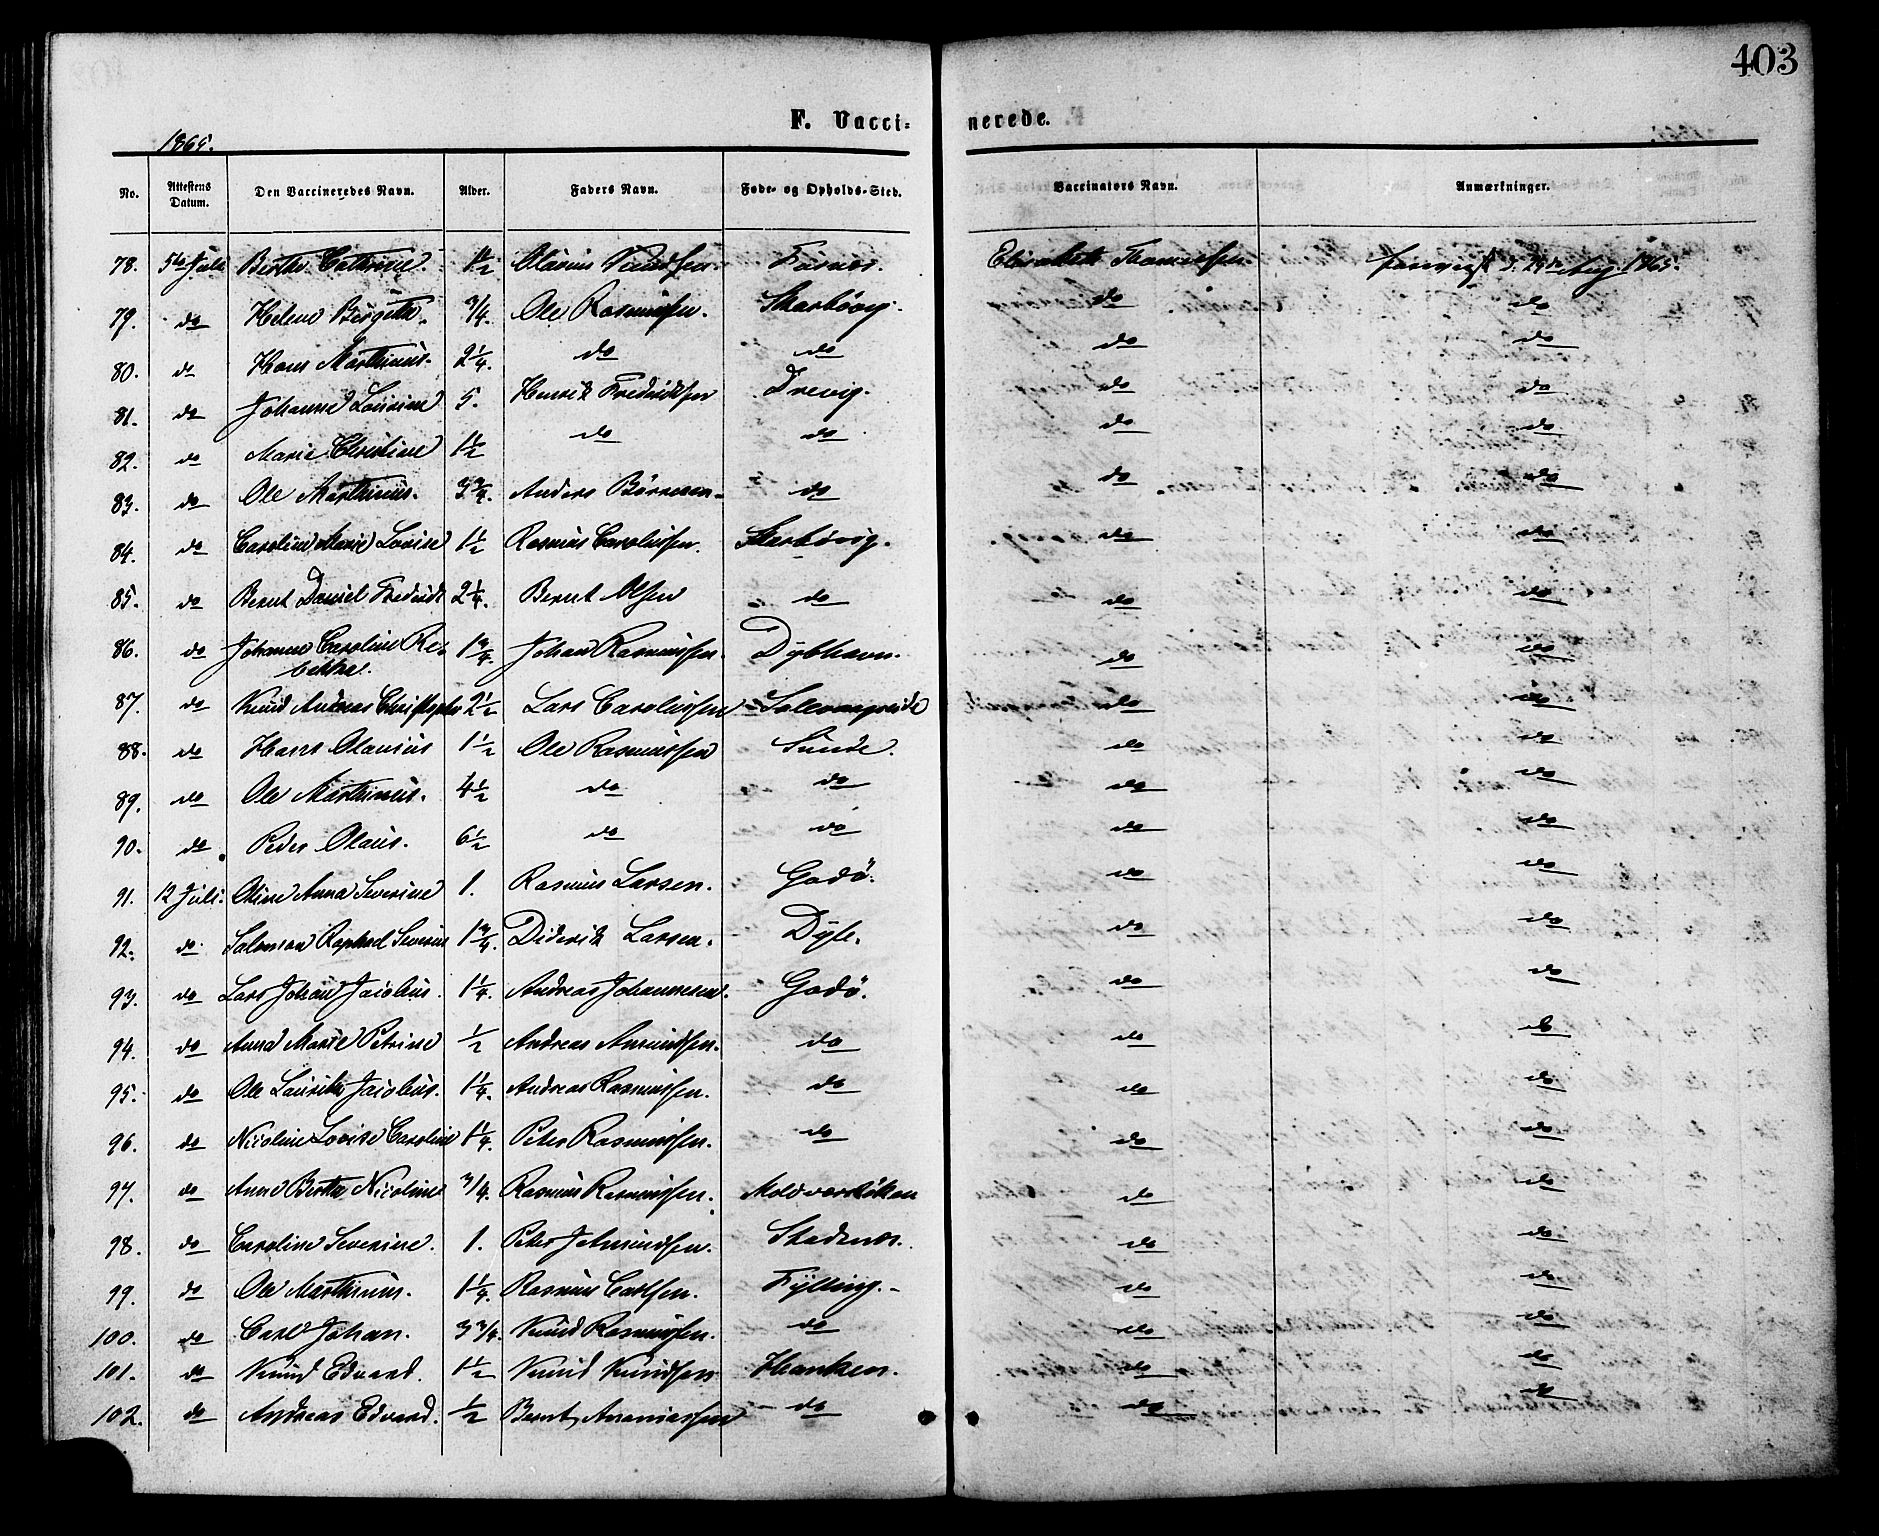 403
F. Vacci- nerede.
1865.
No. Attestens Datum. Den Vaccineredes Navn. Alder. Faders Navn. Føde- og Opholds-Sted. Vaccinators Navn. Anmærkninger.
78. 5te Juli Berthe Cathrine. 1½ Olavius Elisabeth Thomassen. 29de Aug. 1865.
79. do Helene Birgitte. 3/4. Ole Rasmussen. Skarbövig. do do
80. do Hans Marthinus. 2¼. do do do do
81. do Johanne Lovise 5. Henrik Fredriksen Drevig. do do
82. do Marie Christine 1½ do do do do
83. do Ole Marthinus. 3¾. Anders Börresen do do do
84. do Caroline Marie Lovise 1½ Rasmus Carolussen. Skarbövig. do do
85. do Bernt Daniel Fredrik 2¼. Bernt Olsen do do do
86. do Johanne Caroline Re- bekka. 1¾. Johan Rasmussen. Dybhavn. do do
87. do Knud Andreas Christopher 2½ Lars Carolussen do do
88. do Hans Olausius 1½ Ole Rasmussen Sunde. do do
89. do Ole Marthinus. 4½ do do do do
90. do Peder Olaus. 6½ do do do do
91. 12 Juli. Oline Anna Severine 1. Rasmus Larsen. Godö. do do
92. do Salomon Raphael Severin 1¾. Diderik Larsen. Dyle. do do
93. do Lars Johan Jacobus. 1¼. Andreas Johannesen. Godö. do do
94. do Anna Marie Petrine ½ Andreas Amundsen. do do do
95. do Ole Lauritz Jacobus. 1¼. Andreas Rasmussen. do do do
96. do Nicoline Lovise Caroline 1¼. Peter Rasmussen. do do do
97. do Anne Berthe Nicoline 3/4. Rasmus Rasmussen. Moldværsköken do do
98. do Caroline Severine. 1. Peter J. Amundsen. Stadsnes. do do
99. do Ole Marthinus. 1¼. Rasmus Carlsen. Fylling. do do
100. do Carl Johan. 3 3/4. Knud Rasmussen. do do do
101. do Knud Edvard. 1½ Knud Knudsen Hanken. do do
102. do Andreas Edvard. ½ Bernt Ananiassen do do do